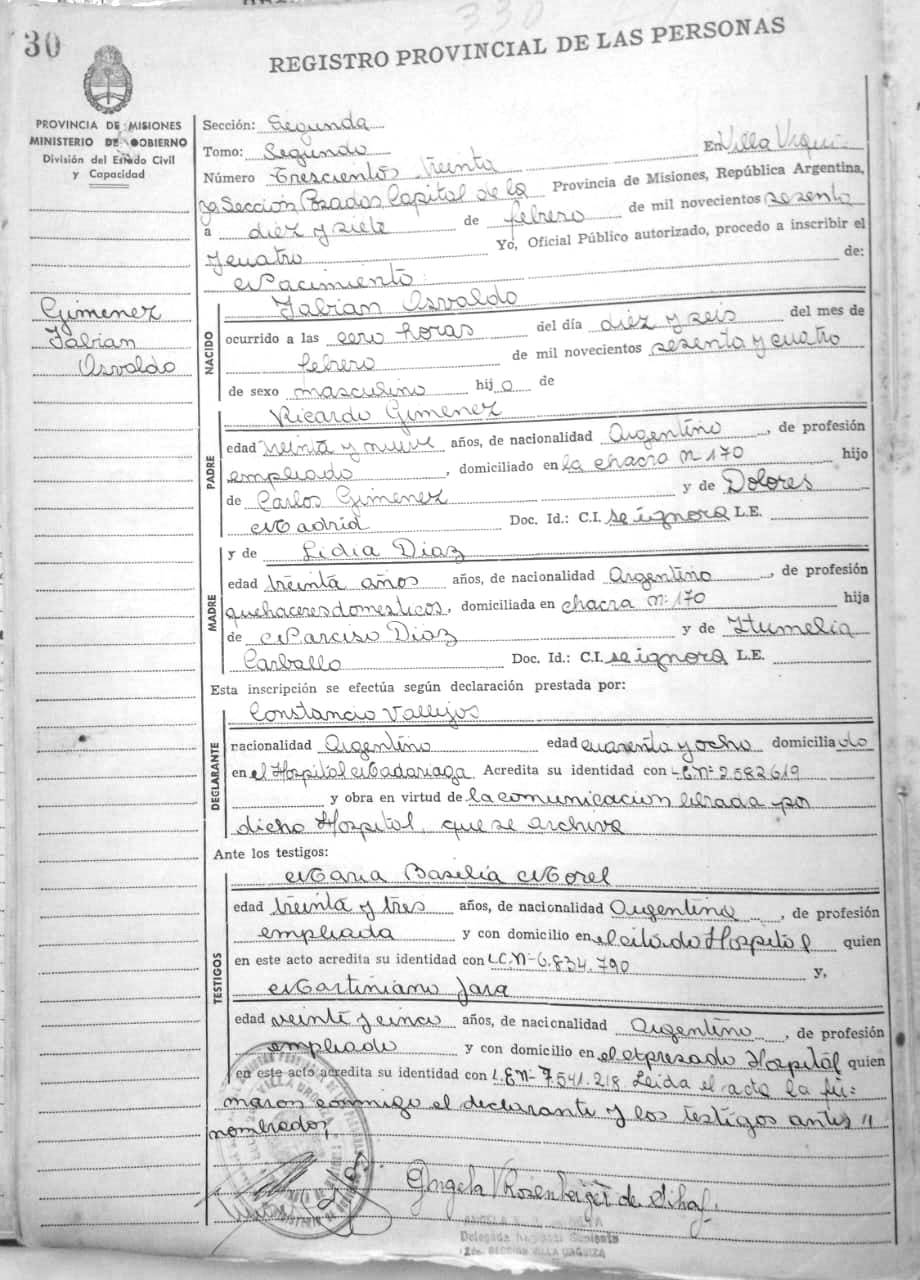 330
30
REGISTRO PROVINCIAL DE LAS PERSONAS
PROVINCIA DE MISIONES
MINISTERIO DE GOBIERNO
División del Estado Civil
y Capacidad
Gimenez
Fabian
Osvaldo
Sección: Segunda
Tomo: Segundo En Villa Urqui
Número Trescientos Treinta
Sección Posadas Capital de la Provincia de Misiones, República Argentina,
a diez y siete de febrero de mil novecientos sesenta
y cuatro Yo, Oficial Público autorizado, procedo a inscribir el
Nacimiento de:
NACIDO
Fabian Osvaldo
ocurrido a las cero horas del día diez y seis del mes de
febrero de mil novecientos sesenta y cuatro
de sexo masculino hijo de
PADRE
Ricardo Gimenez
edad treinta y nueve años, de nacionalidad Argentino, de profesión
empleado, domiciliado en la chacra n 170 hijo
de Carlos Gimenez y de Dolores
Madrid Doc. Id.: C.I. se ignora L.E.
MADRE
y de Lidia Diaz
edad treinta años años, de nacionalidad Argentino, de profesión
quehaceres domesticos, domiciliada en chacra nº 170 hija
de Narciso Diaz y de Itumelia
Carballo Doc. Id.: C.I. se ignora L.E.
Esta inscripción se efectúa según declaración prestada por:
DECLARANTE
Constancio Vallejos
nacionalidad Argentino edad cuarenta y ocho domiciliado
en el Hospital Madariaga Acredita su identidad con L.E. Nº 2582619
y obra en virtud de la comunicacion librada por
dicho Hospital, que se archiva
Ante los testigos:
TESTIGOS
Maria Basilia Morel
edad treinta y tres años, de nacionalidad Argentina, de profesión
empleada y con domicilio en el citado Hospital quien
en este acto acredita su identidad con L.C. Nº 6.834.790 y,
Martiniano Jara
edad veinte y cinco años, de nacionalidad Argentino, de profesión
empleado y con domicilio en el expresado Hospital quien
en este acto acredita su identidad con L.E. Nº 7.541.218 Leida el acta la fir-
maron conmigo el declarante y los testigos antes
nombrados
Angela V Rosenberger de Schaf
ANGELA
Delegada
SECCION VILLA URQUIZA